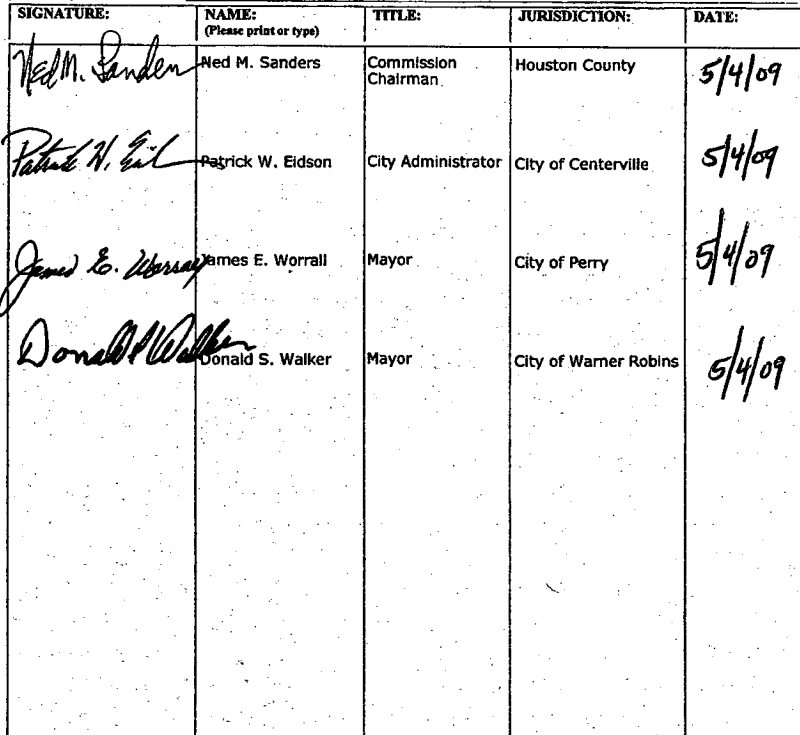 SIGNATURE: NAME: TITLE: JURISDICTION: DATE:
(Please print or type)
Ned M. Sanders Ned M. Sanders Commission Houston County 5/4/09
Chairman
Patrick W. Eidson Patrick W. Eidson City Administrator City of Centerville 5/4/09
James E. Worrall James E. Worrall Mayor City of Perry 5/4/09
Donald S. Walker Donald S. Walker Mayor City of Warner Robins 5/4/09